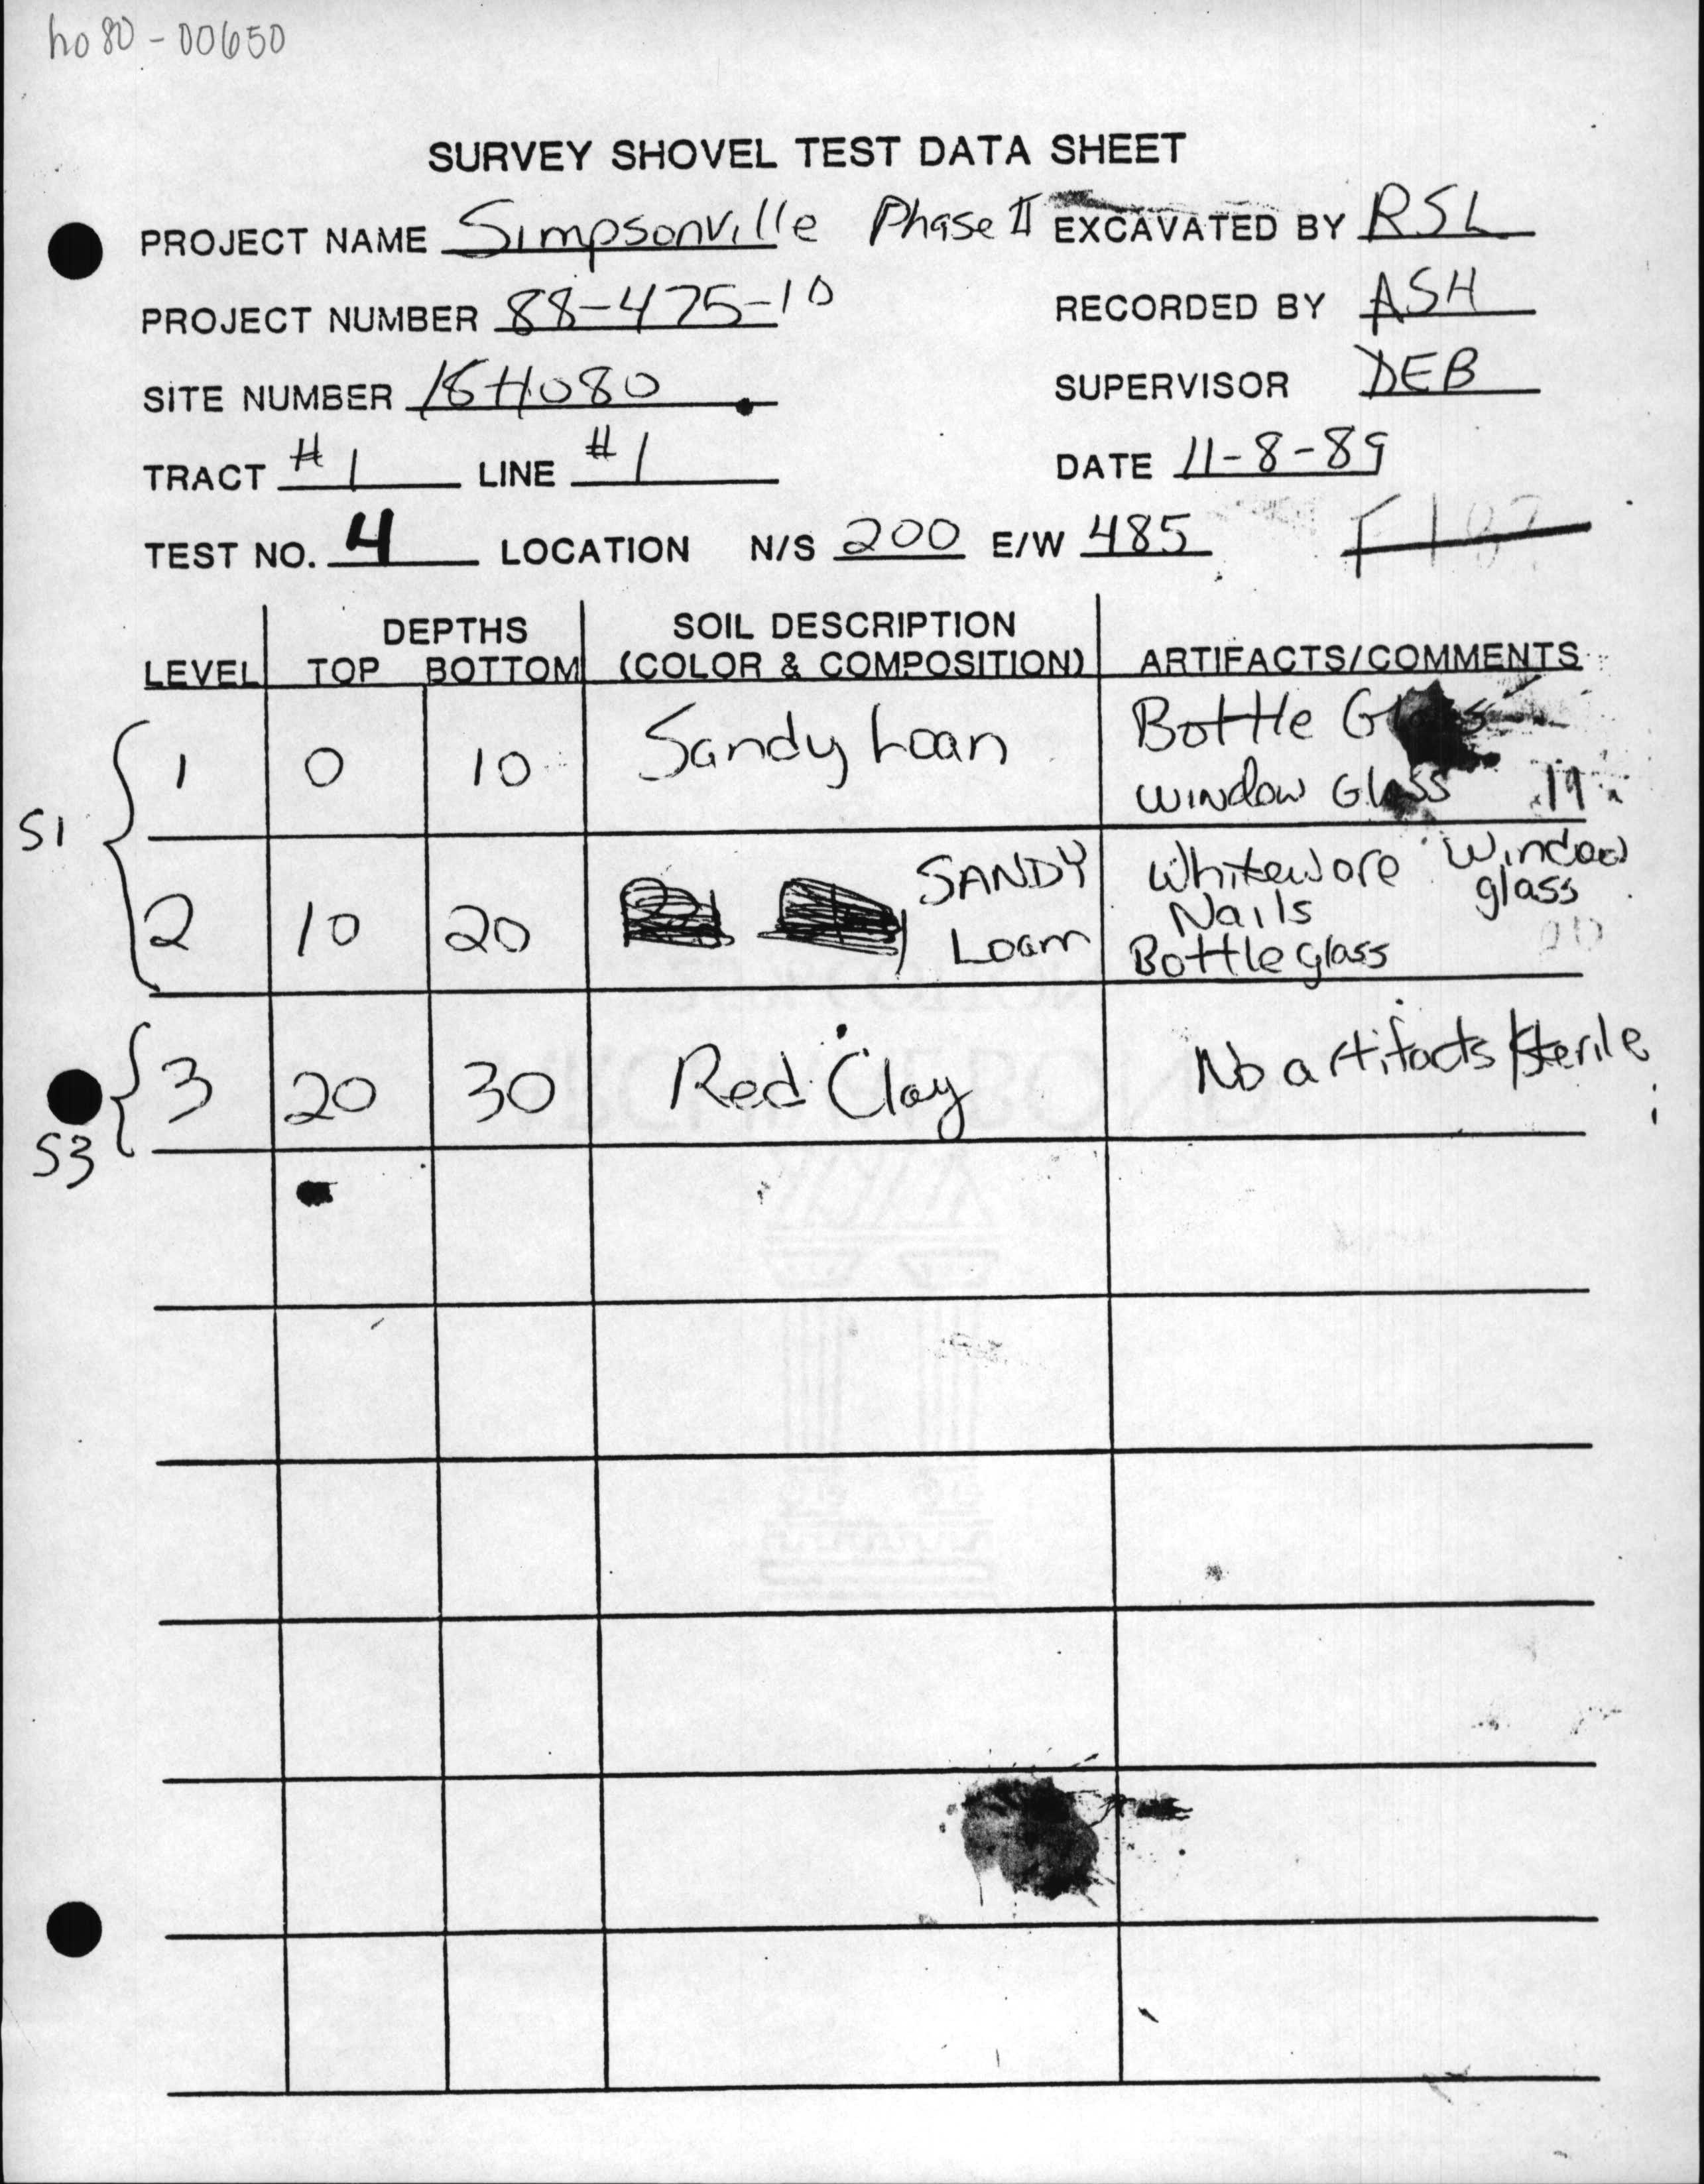 ho80-00650
SURVEY SHOVEL TEST DATA SHEET
PROJECT NAME Simpsonville Phase II EXCAVATED BY RSL
PROJECT NUMBER 88-475-10 RECORDED BY ASH
SITE NUMBER 18HO80 SUPERVISOR DEB
TRACT #1 LINE #1 DATE 11-8-89
TEST NO. 4 LOCATION N/S 200 E/W 485
DEPTHS SOIL DESCRIPTION
LEVEL TOP BOTTOM (COLOR & COMPOSITION) ARTIFACTS/COMMENTS
S1
1 0 10 Sandy Loan Bottle Glass
Window Glass 19
2 10 20 SANDY Loam Whiteware Window glass
Nails
Bottle glass
S3
3 20 30 Red Clay No artifacts/sterile